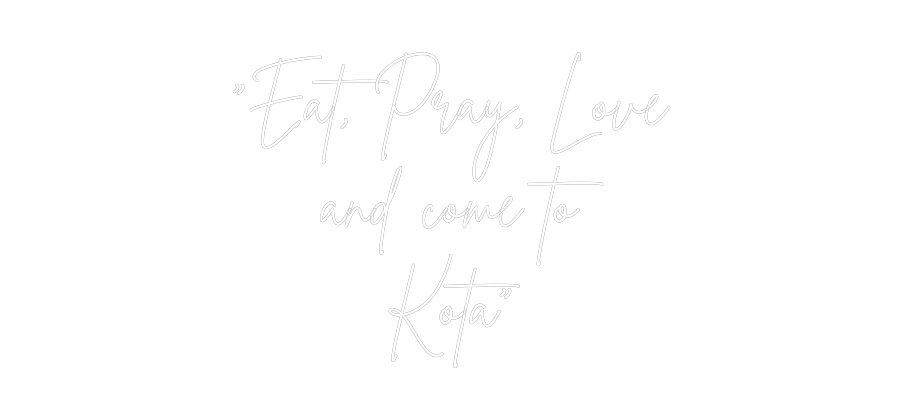 ”Eat, Pray, Love
and come to
Kota”